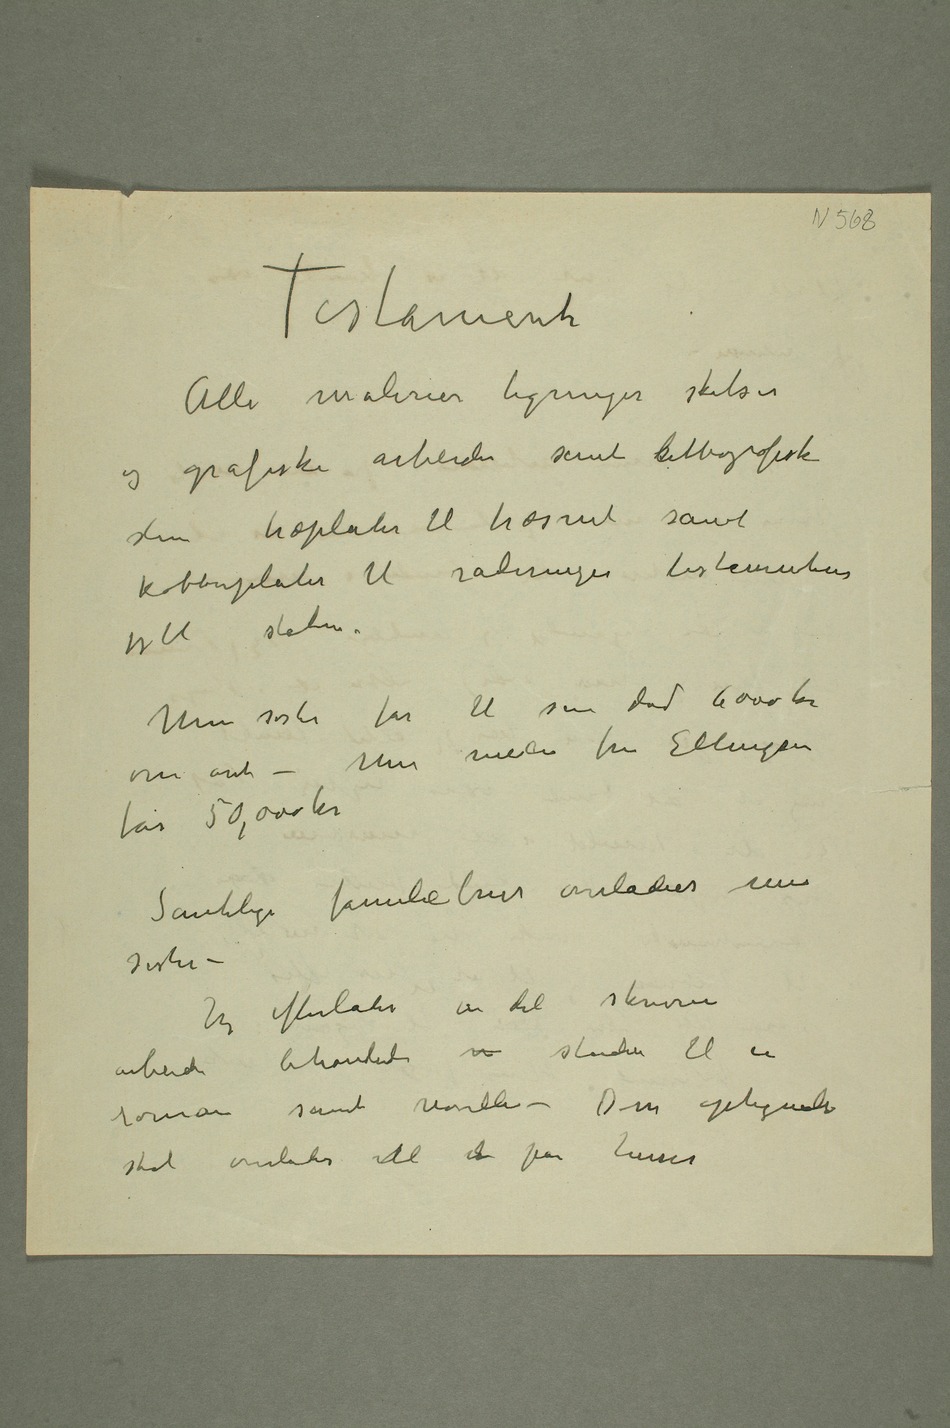 N 568
Testament
Alle malerier tegninger skitser
og grafiske arbeider samt lithografisk
sten træplater til træsnit samt
kobberplater til raderinger testamenterer
jeg til staten.
Min søster får til sin død 6000 kr
om året – Min niece fru Ellingsen
får 50,000 kr
Samtlige familiebrever overlades min
søster –
Jeg efterlater en del skrevne
arbeider behandlede studier til en
roman samt noveller – Disse optegnelser
skal overlates til et par